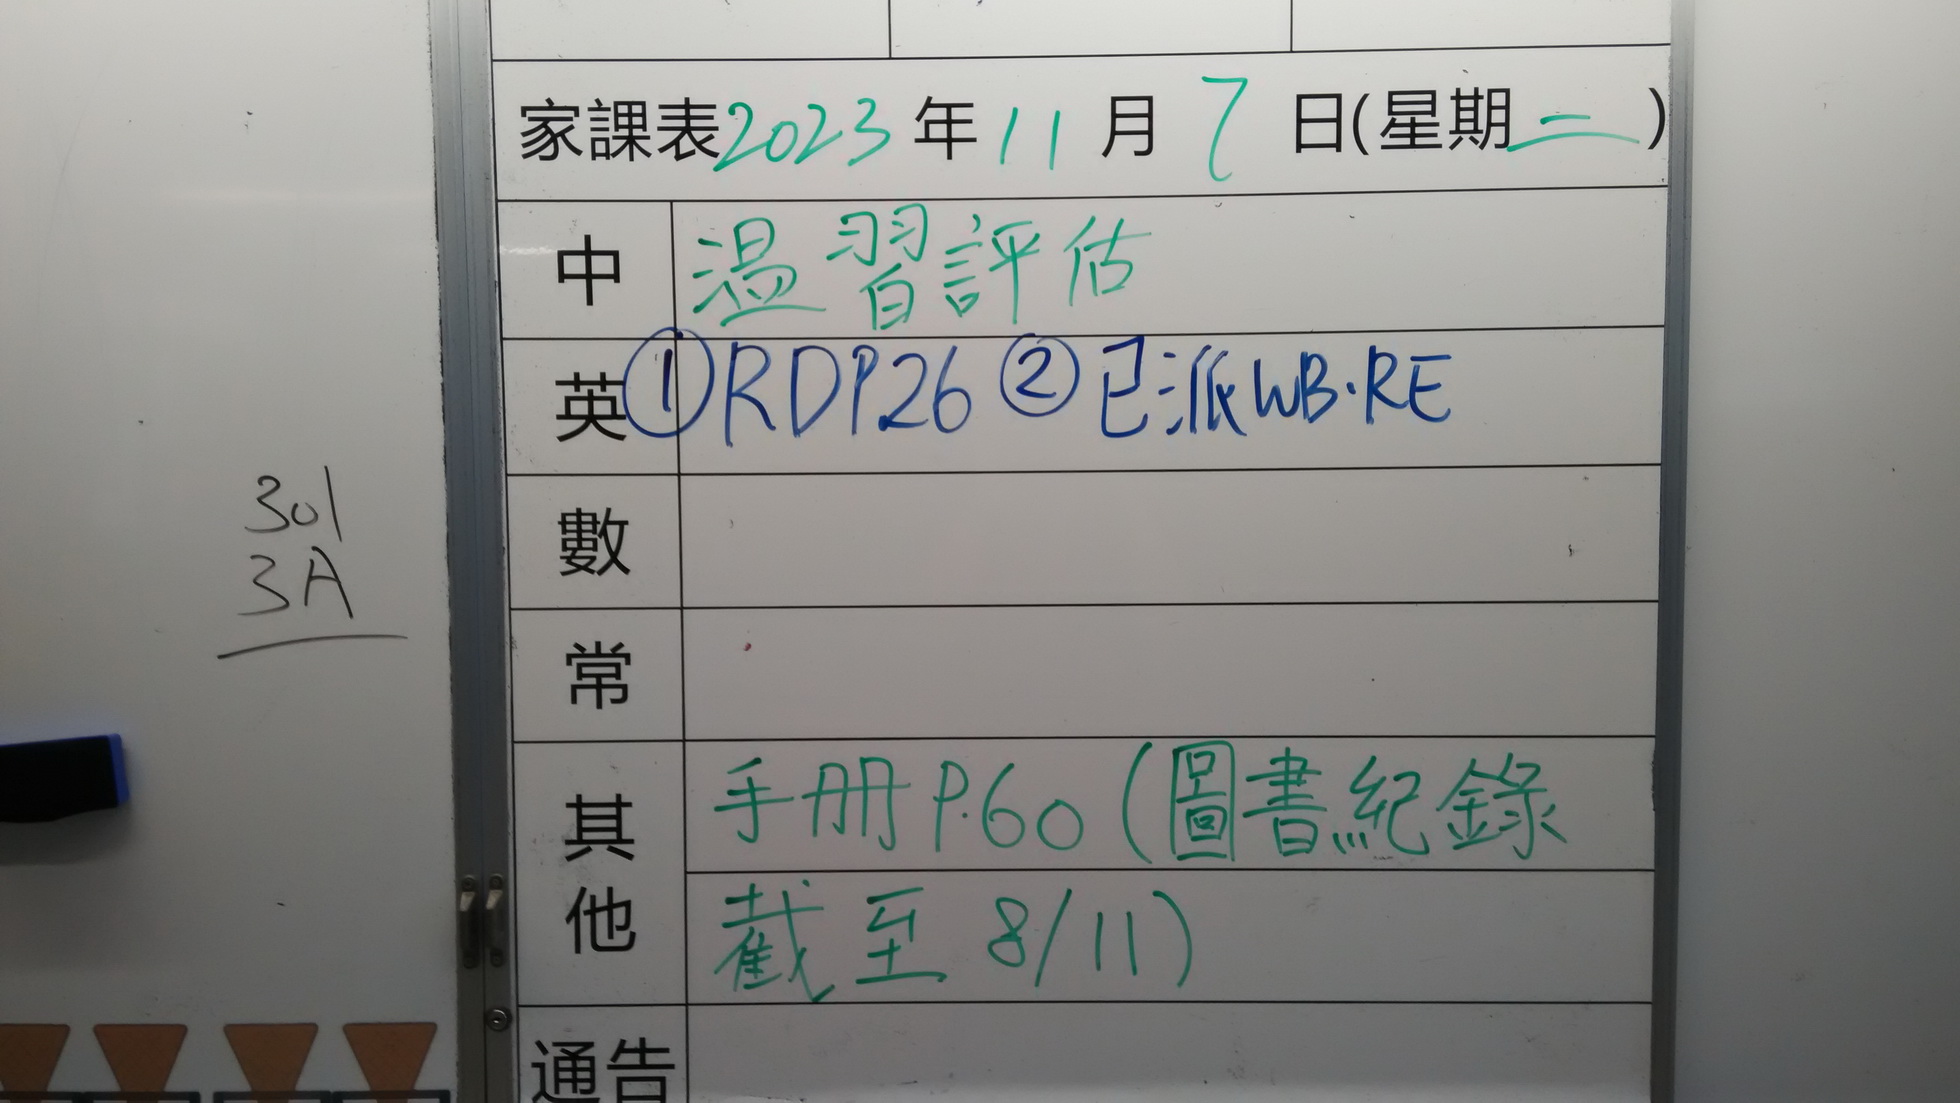 家課表2023年11月7日(星期二)
中 溫習評估
英 ①RDP.26 ②已派WB.RE
數
常
其他 手冊P.60(圖書紀錄
截至8/11)
通告
301
3A